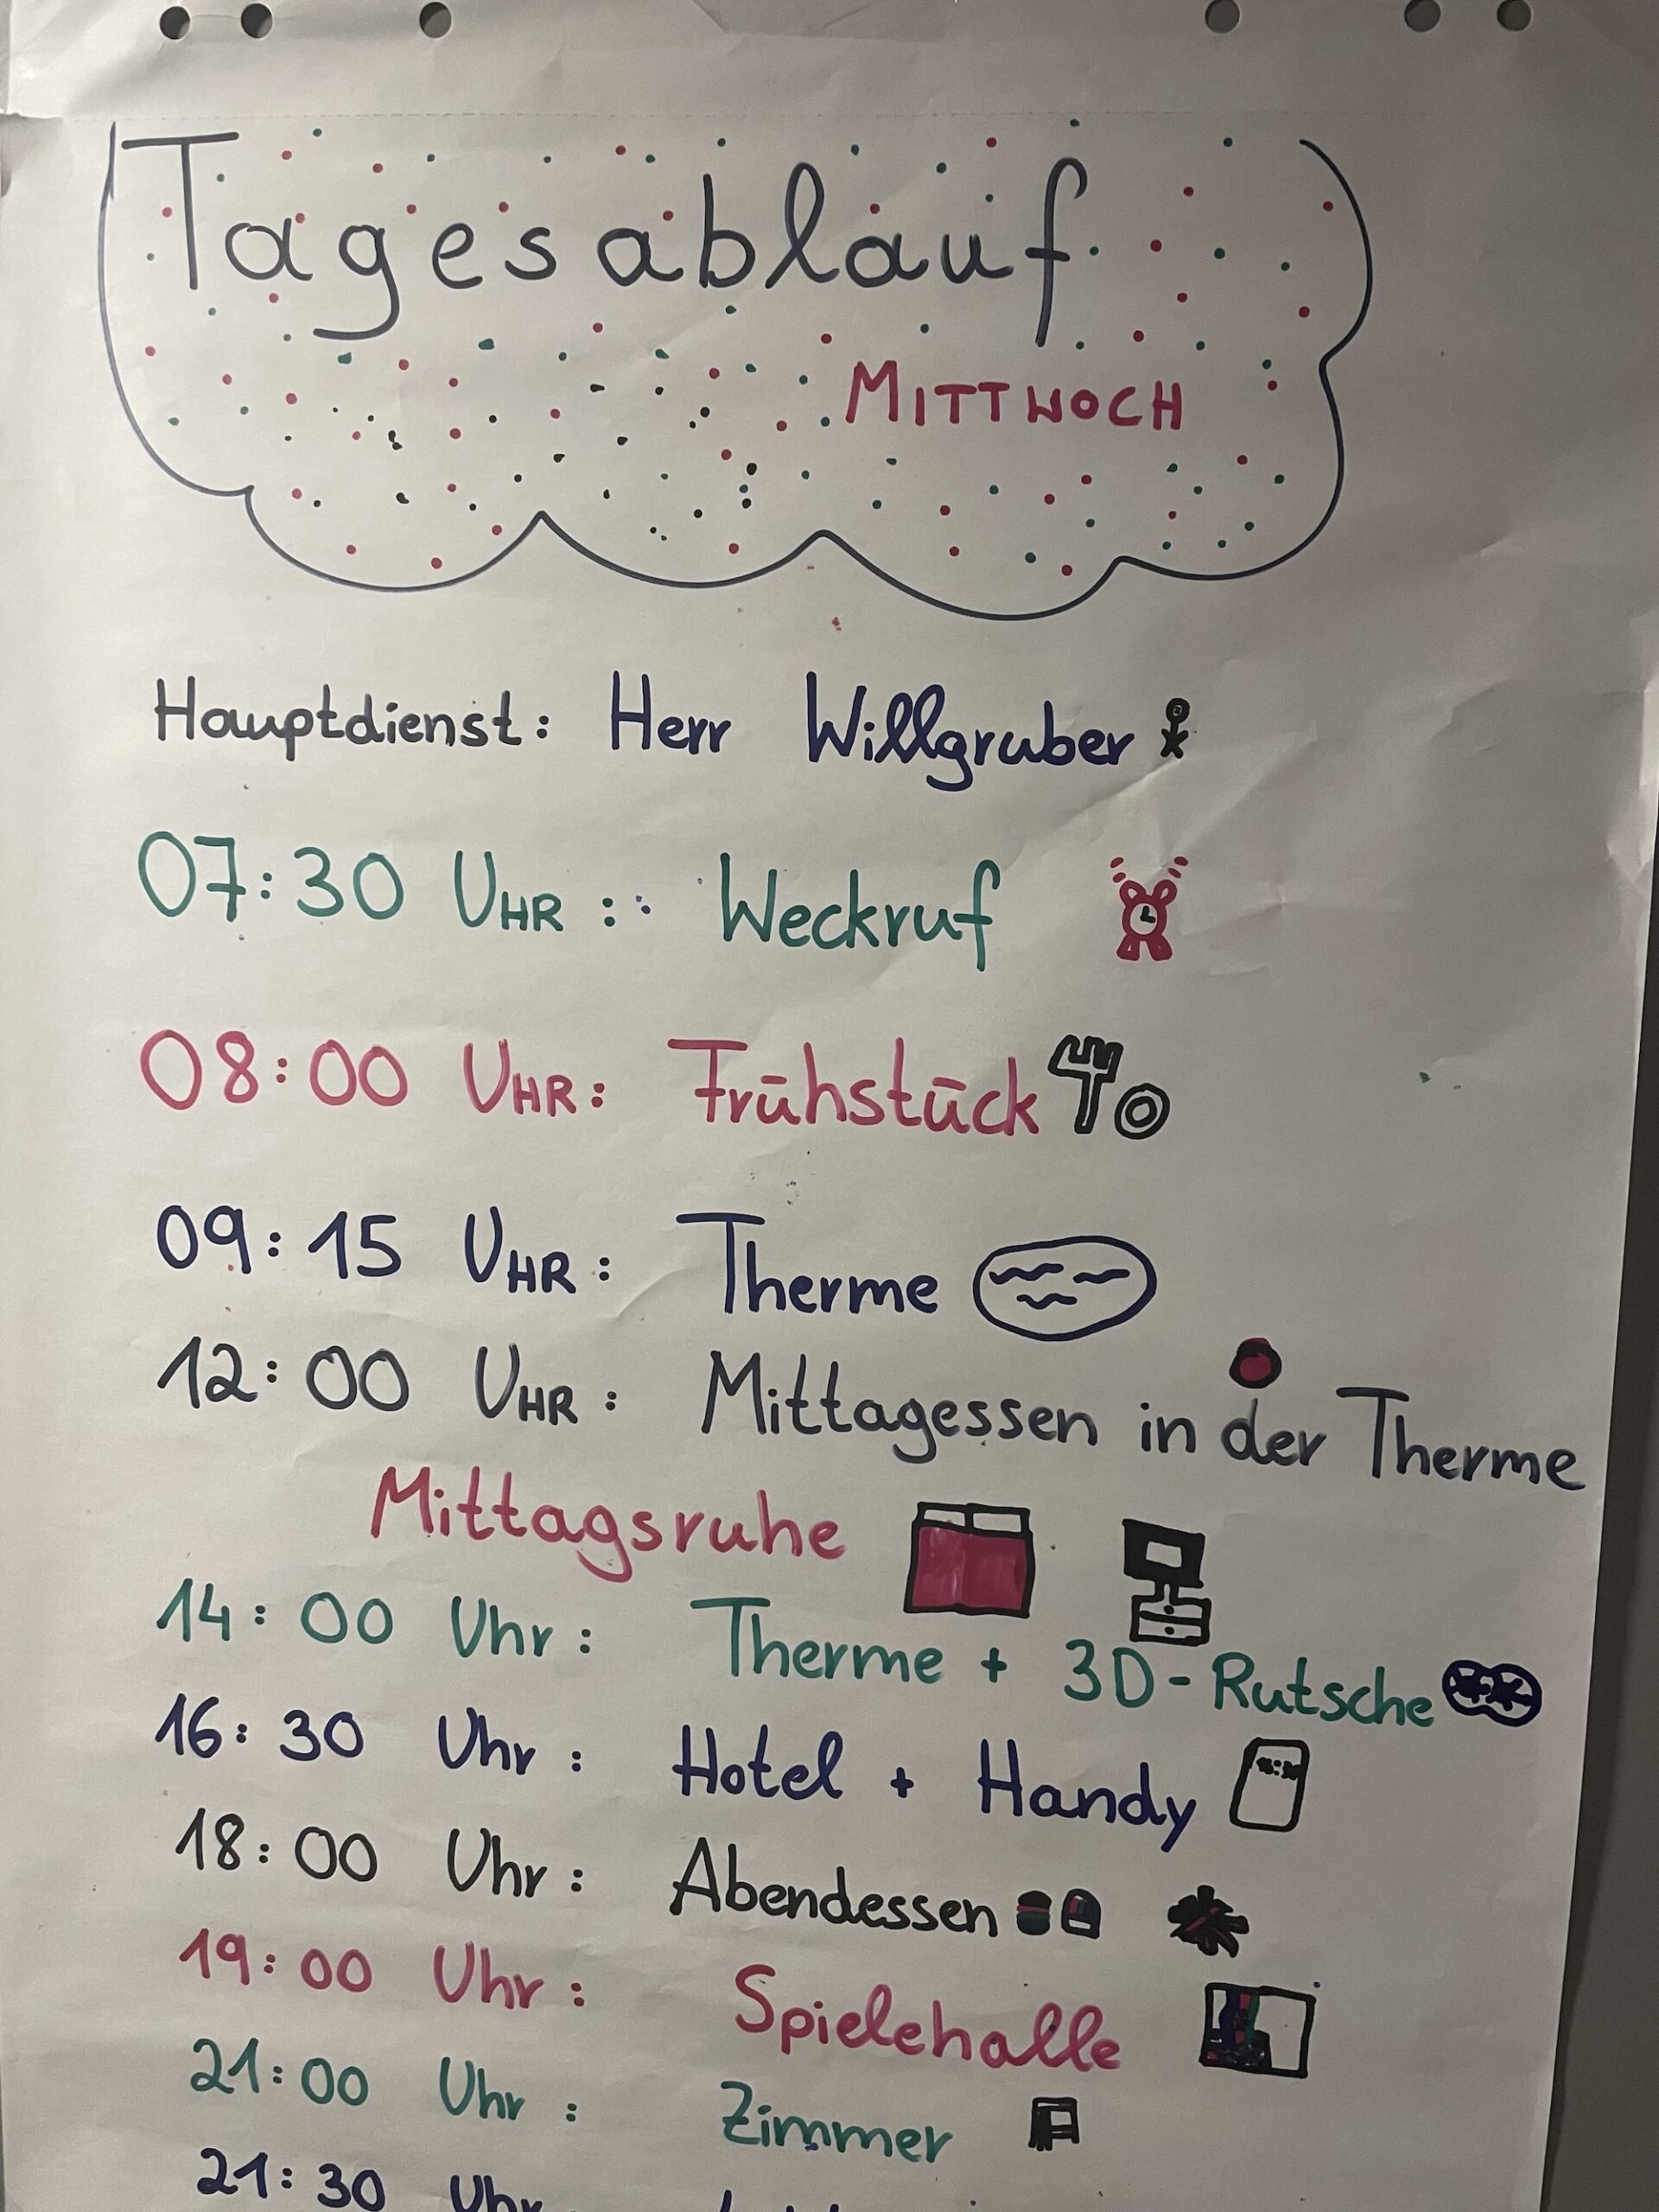 Tagesablauf
MITTWOCH
Hauptdienst: Herr Willgruber
07:30 UHR :: Weckruf
08:00 UHR: Frühstück
09:15 UHR: Therme
12:00 UHR: Mittagessen in der Therme
Mittagsruhe
14:00 Uhr: Therme + 3D-Rutsche
16:30 Uhr: Hotel + Handy
18:00 Uhr: Abendessen
19:00 Uhr: Spielehalle
21:00 Uhr: Zimmer
21:30 Uhr